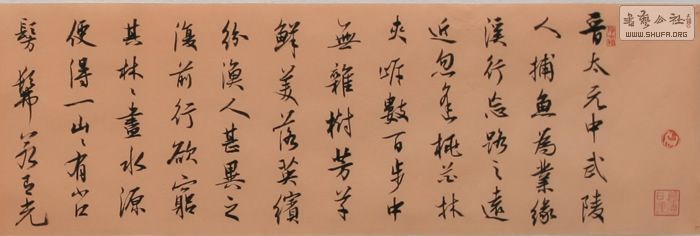 晋太元中武陵
人捕魚為業緣
溪行忘路之遠
近忽逢桃花林
夾岸數百步中
無雜樹芳草
鮮美落英繽
紛漁人甚異之
復前行欲窮
其林〻盡水源
便得一山〻有小口
髣髴若有光
WWW.SHUFA.ORG